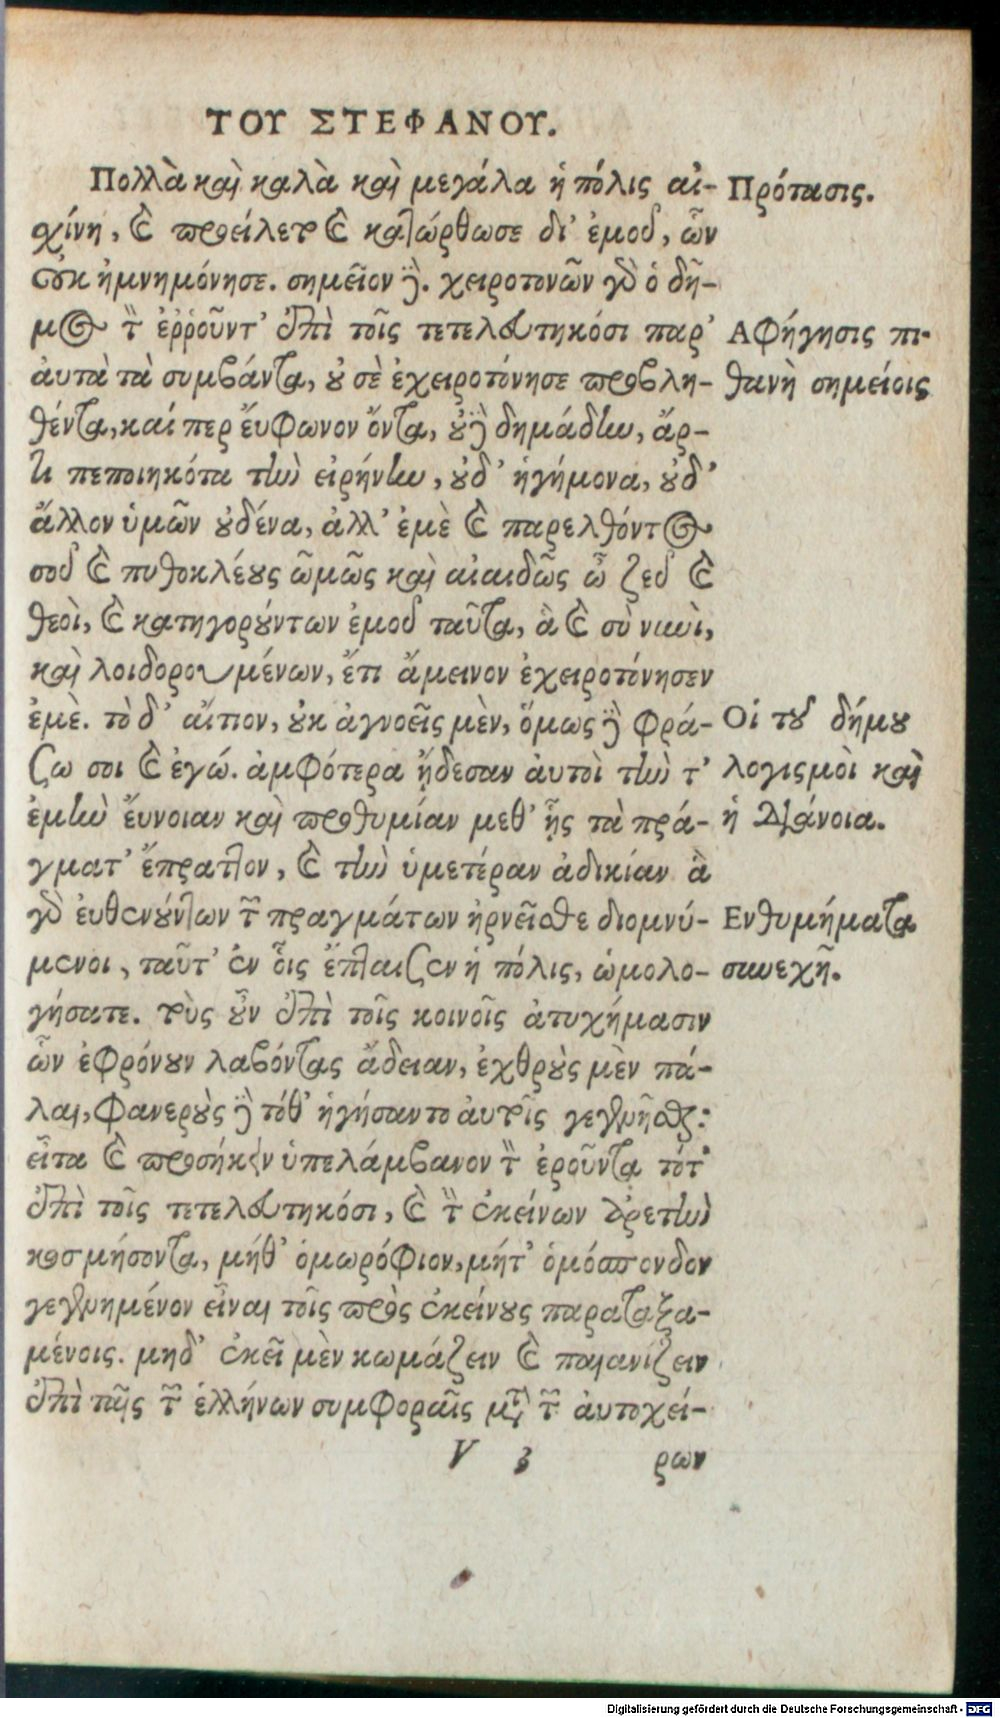 ΤΟΥ ΣΤΕΦΑΝΟΥ.
Πολλὰ καὶ καλὰ καὶ μεγάλα ἡ πόλις αἰ-
σχίνη, καὶ προείλετο καὶ κατώρθωσε δι' ἐμοῦ, ὧν
οὐκ ἠμνημόνησε. σημεῖον δέ. χειροτονῶν γὰρ ὁ δῆ-
μος τὸν ἐῤῥοῦντ' ἐπὶ τοῖς τετελευτηκόσι παρ'
ἀυτὰ τὰ συμβάντα, οὐ σὲ ἐχειροτόνησε προβλη-
θέντα, καί περ ἔυφωνον ὄντα, οὐδὲ δημάδην, ἄρ-
τι πεποιηκότα τὴν εἰρήνην, οὐδ' ἡγήμονα, οὐδ'
ἄλλον ὑμῶν οὐδένα, ἀλλ' ἐμὲ καὶ παρελθόντος
σοῦ καὶ πυθοκλέους ὠμῶς καὶ ἀναιδῶς ὦ ζεῦ καὶ
θεοὶ, καὶ κατηγορούντων ἐμοῦ ταῦτα, ἃ καὶ σὺ νυνὶ,
καὶ λοιδορουμένων, ἔτι ἄμεινον ἐχειροτόνησεν
ἐμέ. τὸ δ' αἴτιον, οὐκ ἀγνοεῖς μὲν, ὅμως δὲ φρά-
ζω σοι καὶ ἐγώ. ἀμφότερα ᾔδεσαν ἀυτοὶ τὴν τ'
ἐμὴν ἔυνοιαν καὶ προθυμίαν μεθ' ἧς τὰ πρά-
γματ' ἔπραττον, καὶ τὴν ὑμετέραν ἀδικίαν ἃ
γὰρ ἐυθενούντων τῶν πραγμάτων ἠρνεῖσθε διομνύ-
μενοι, ταῦτ' ἐν οἷς ἔπταισεν ἡ πόλις, ὡμολο-
γήσατε. τοὺς οὖν ἐπὶ τοῖς κοινοῖς ἀτυχήμασιν
ὧν ἐφρόνουν λαβόντας ἄδειαν, ἐχθροὺς μὲν πά-
λαι, φανεροὺς δὲ τόθ' ἡγήσαντο ἀυτοῖς γεγενῆσθαι:
εἶτα καὶ προσήκειν ὑπελάμβανον τὸν ἐροῦντα τότ'
ἐπὶ τοῖς τετελευτηκόσι, καὶ τὴν ἐκείνων ἀρετὴν
κοσμήσοντα, μήθ' ὁμωρόφιον, μήτ' ὁμόσπονδον
γεγενημένον εἶναι τοῖς πρὸς ἐκείνους παραταξα-
μένοις. μηδ' ἐκεῖ μὲν κωμάζειν καὶ παιανίζειν
ἐπὶ ταῖς τῶν ἑλλήνων συμφοραῖς μετὰ τῶν ἀυτοχεί-
V 3 ρων
Πρότασις.
Αφήγησις πι-
θανὴ σημείοις
Οἱ τοῦ δήμου
λογισμοὶ καὶ
ἡ διάνοια.
Ενθυμήματα
συνεχῆ.
Digitalisierung gefördert durch die Deutsche Forschungsgemeinschaft - DFG